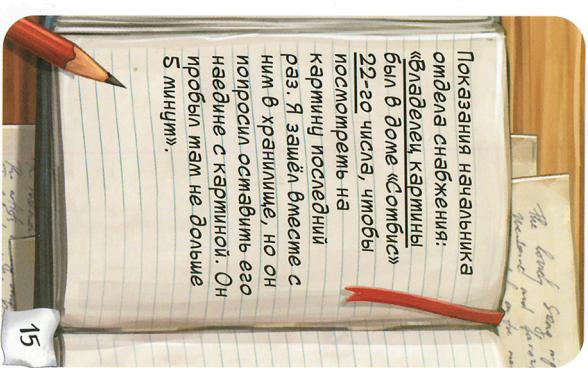 Показания начальника
отдела снабжения:
«Владелец картины
был в доме «Сотбис»
22-го числа, чтобы
посмотреть на
картину последний
раз. Я зашёл вместе с
ним в хранилище, но он
попросил оставить его
наедине с картиной. Он
пробыл там не дольше
5 минут».
15
The lovely